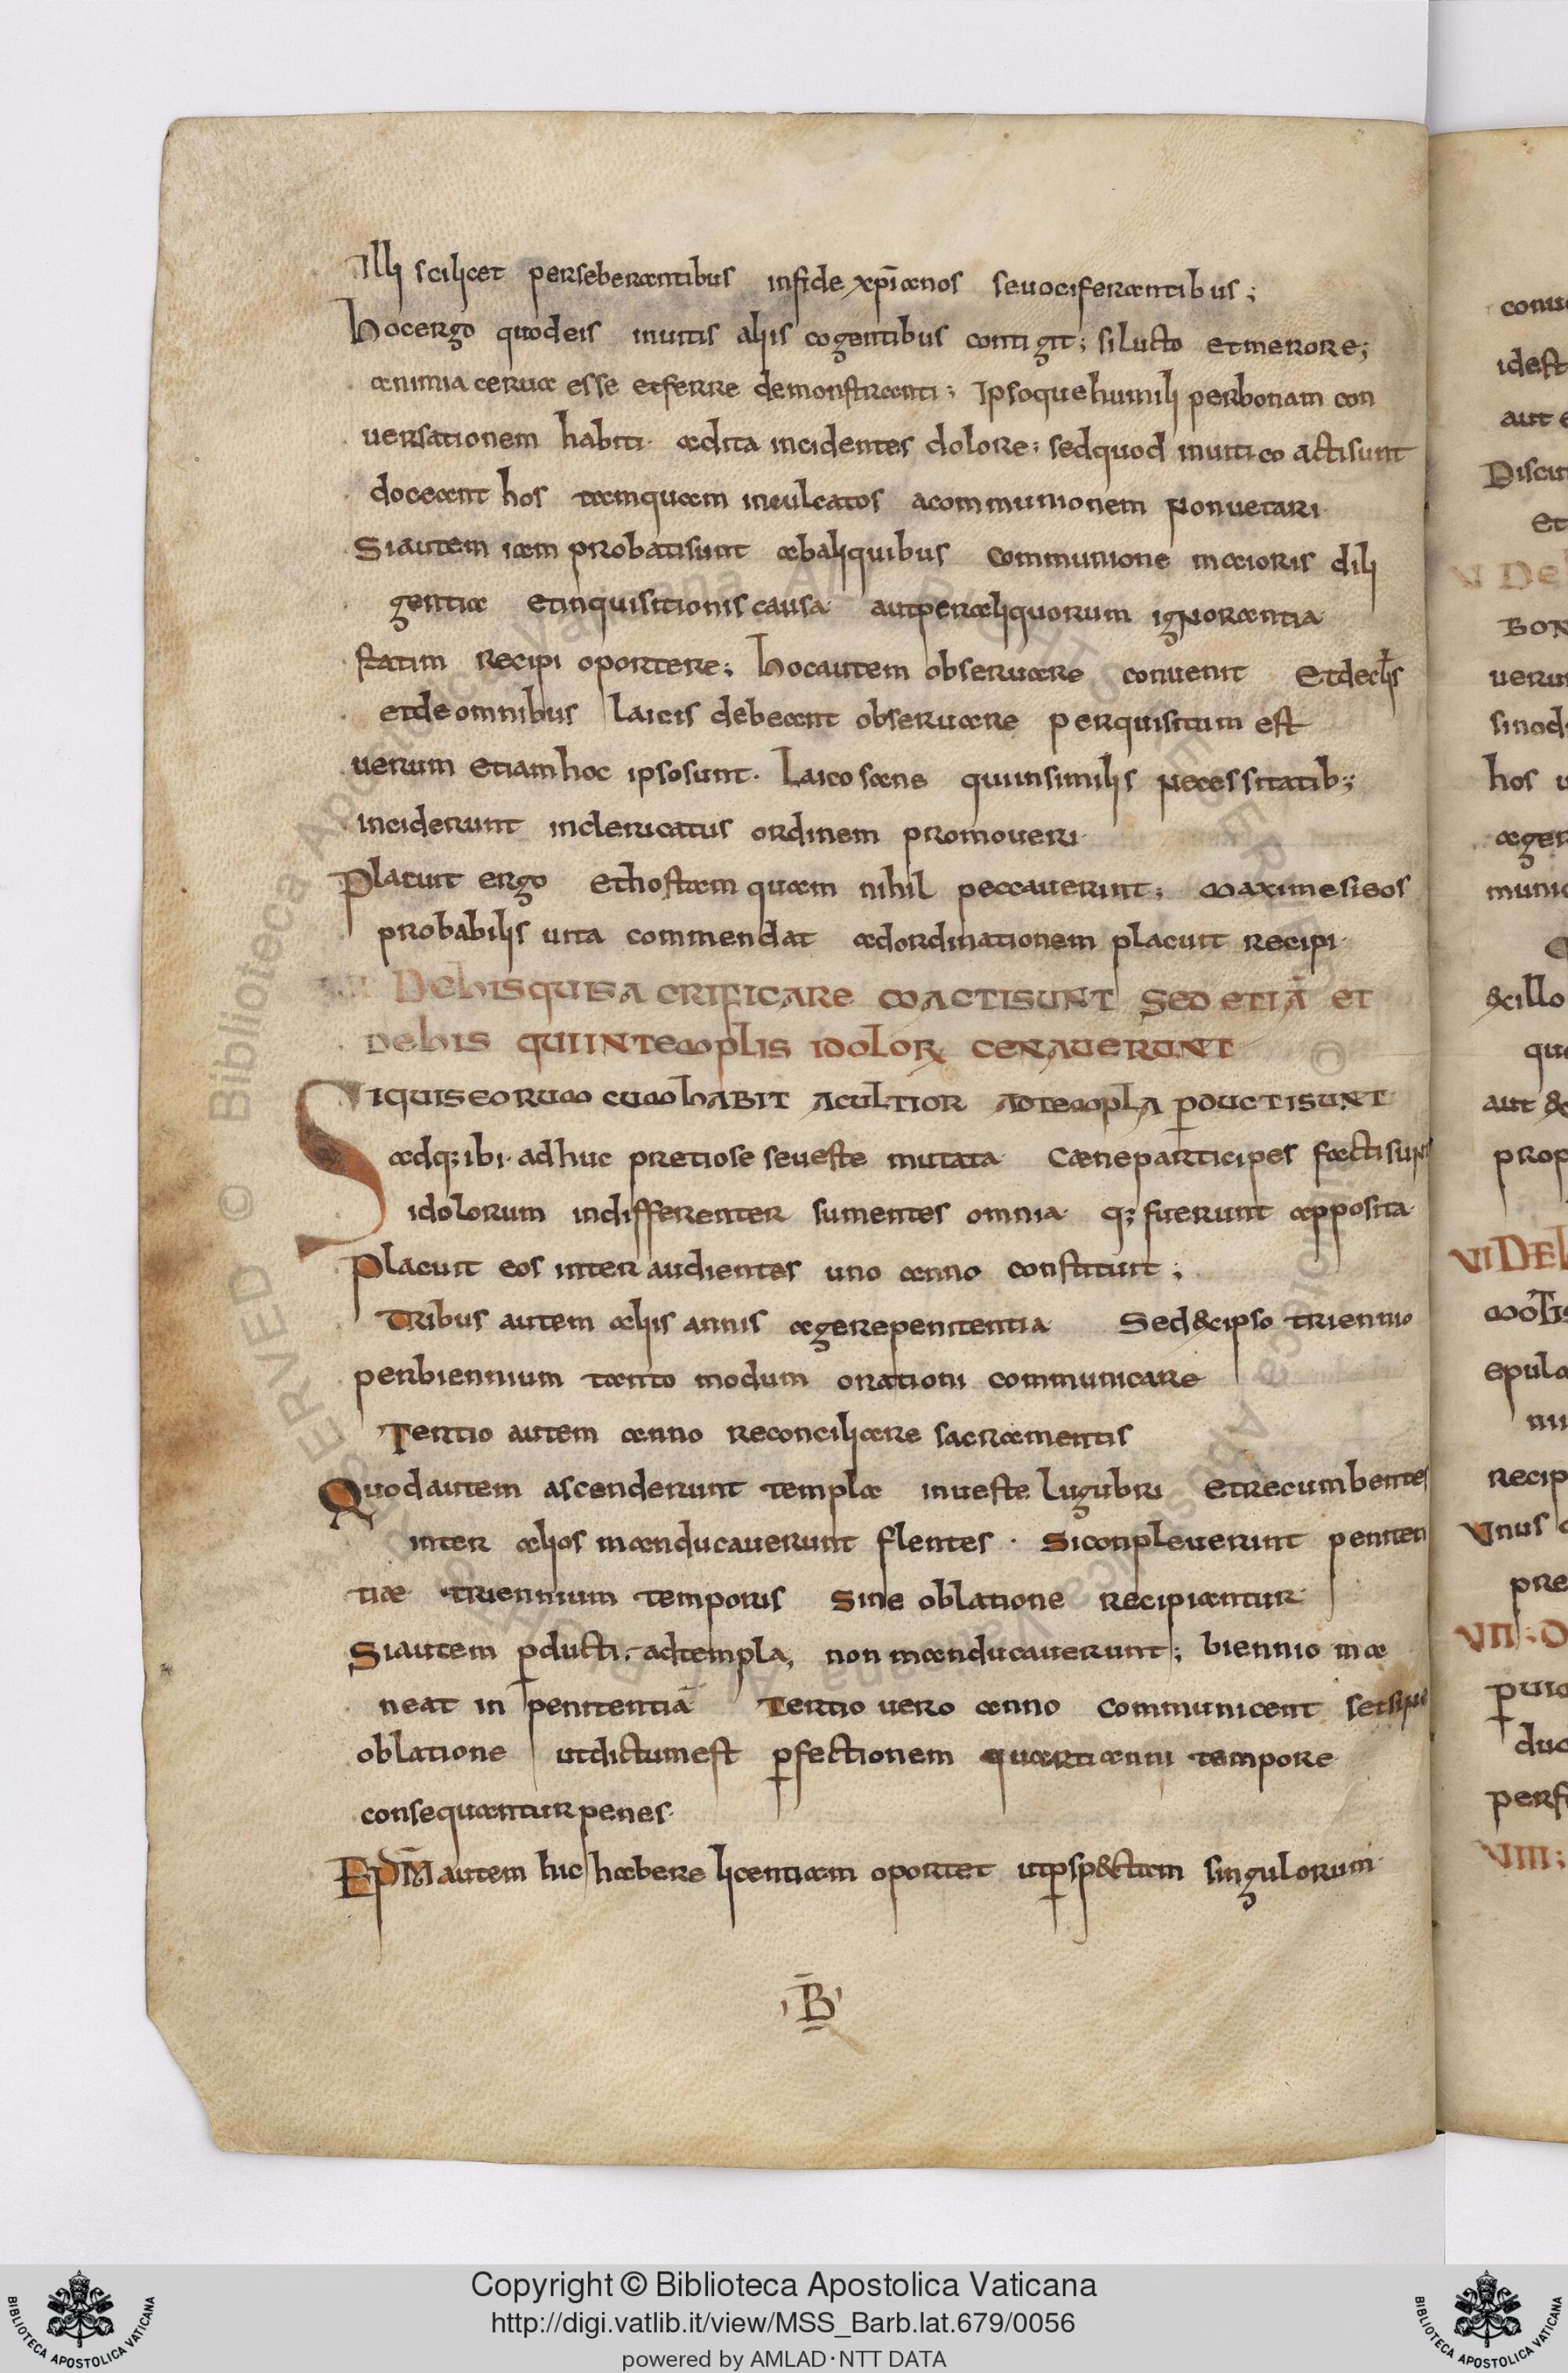 Illi scilicet perseberantibus infide xp̄ianos sevociferantibus;
hocergo quodeis inuitis aliis cogentibus contigit; silucto etmerore;
animia cerua esse etferre demonstranti; Ipsoquehumili perbonam con
uersationem habiti· adita incidentes dolore; sedquod inuitico actisunt
doceant hos tamquam inculcatos acommunionem nonuetari
Siautem iam probatisunt abaliquibus communione maioris dili
gentia etinquisitionis causa· autperaliquorum ignorantia·
statim recipi oportere; hocautem obseruare conuenit Etdecl̄is
etdeomnibus laicis debeant obseruare perquisitum est
uerum etiamhoc ipsosunt· Laico sane quiinsimilis necessitatib;
inciderunt inclericatus ordinem promoueri·
Placuit ergo ethostam quam nihil peccauerint; maximesieos
probabilis uita commendat adordinationem placuit recipi·
Dehisquisacrificare coactisunt Sed etiā et
dehis quiintemplis idolorꝝ cenauerunt
Siquiseorum cumhabit acultior adtempla ꝑductisunt
adq; ibi· adhuc pretiose seueste mutata caeneparticipes factisunt
idolorum indifferenter sumentes omnia· q; fuerunt apposita·
Placuit eos inter audientes uno anno constituit;
Tribus autem aliis annis agerepenitentia· Sed&ipso triennio
perbiennium tanto modum orationi communicare
Tertio autem anno reconciliare sacramentis
Quodautem ascenderunt templa inueste lugubri etrecumbentes
inter alios manducauerunt flentes · Siconpleuerint peniten
tiae triennium temporis Sine oblatione recipiantur·
Siautem ꝑducti· adtempla, non manducauerunt; biennio ma
neat in penitentiā Tertio uero anno communicent
oblatione utdictumest ꝑfectionem quartianni tempore
consequanturpenes·
Ep̄m autem huc habere licentiam oportet utꝑsp&ctam singulorum
·B̄·
conu
idest
aut e
Discu
et
VI De
BON
uerum
sinod
hos u
ager
munic
&illo
que
aut &
prop
VI DE
epula
nu
recip
Vnus
pre
VII·
duc
perf
VIII;
Copyright © Biblioteca Apostolica Vaticana
http://digi.vatlib.it/view/MSS_Barb.lat.679/0056
powered by AMLAD·NTT DATA
BIBLIOTECA APOSTOLICA VATICANA
BIBLIOTECA APOSTOLICA VATICANA